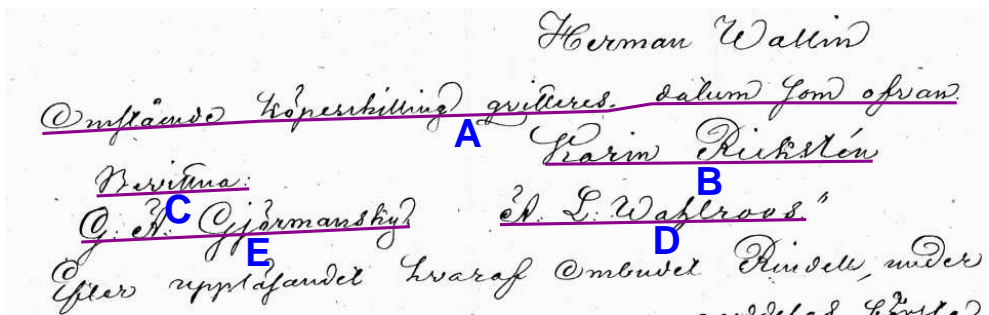 Herman Wallin
Omstående köpeskilling qvitteres. datum som ofvan.
A
Karin Rickstén
B
Bevittna:
C
G. A. Gjörmansky A. L. Wahlroos"
E D
Efter uppläsandet hvaraf Ombudet Rindell, under